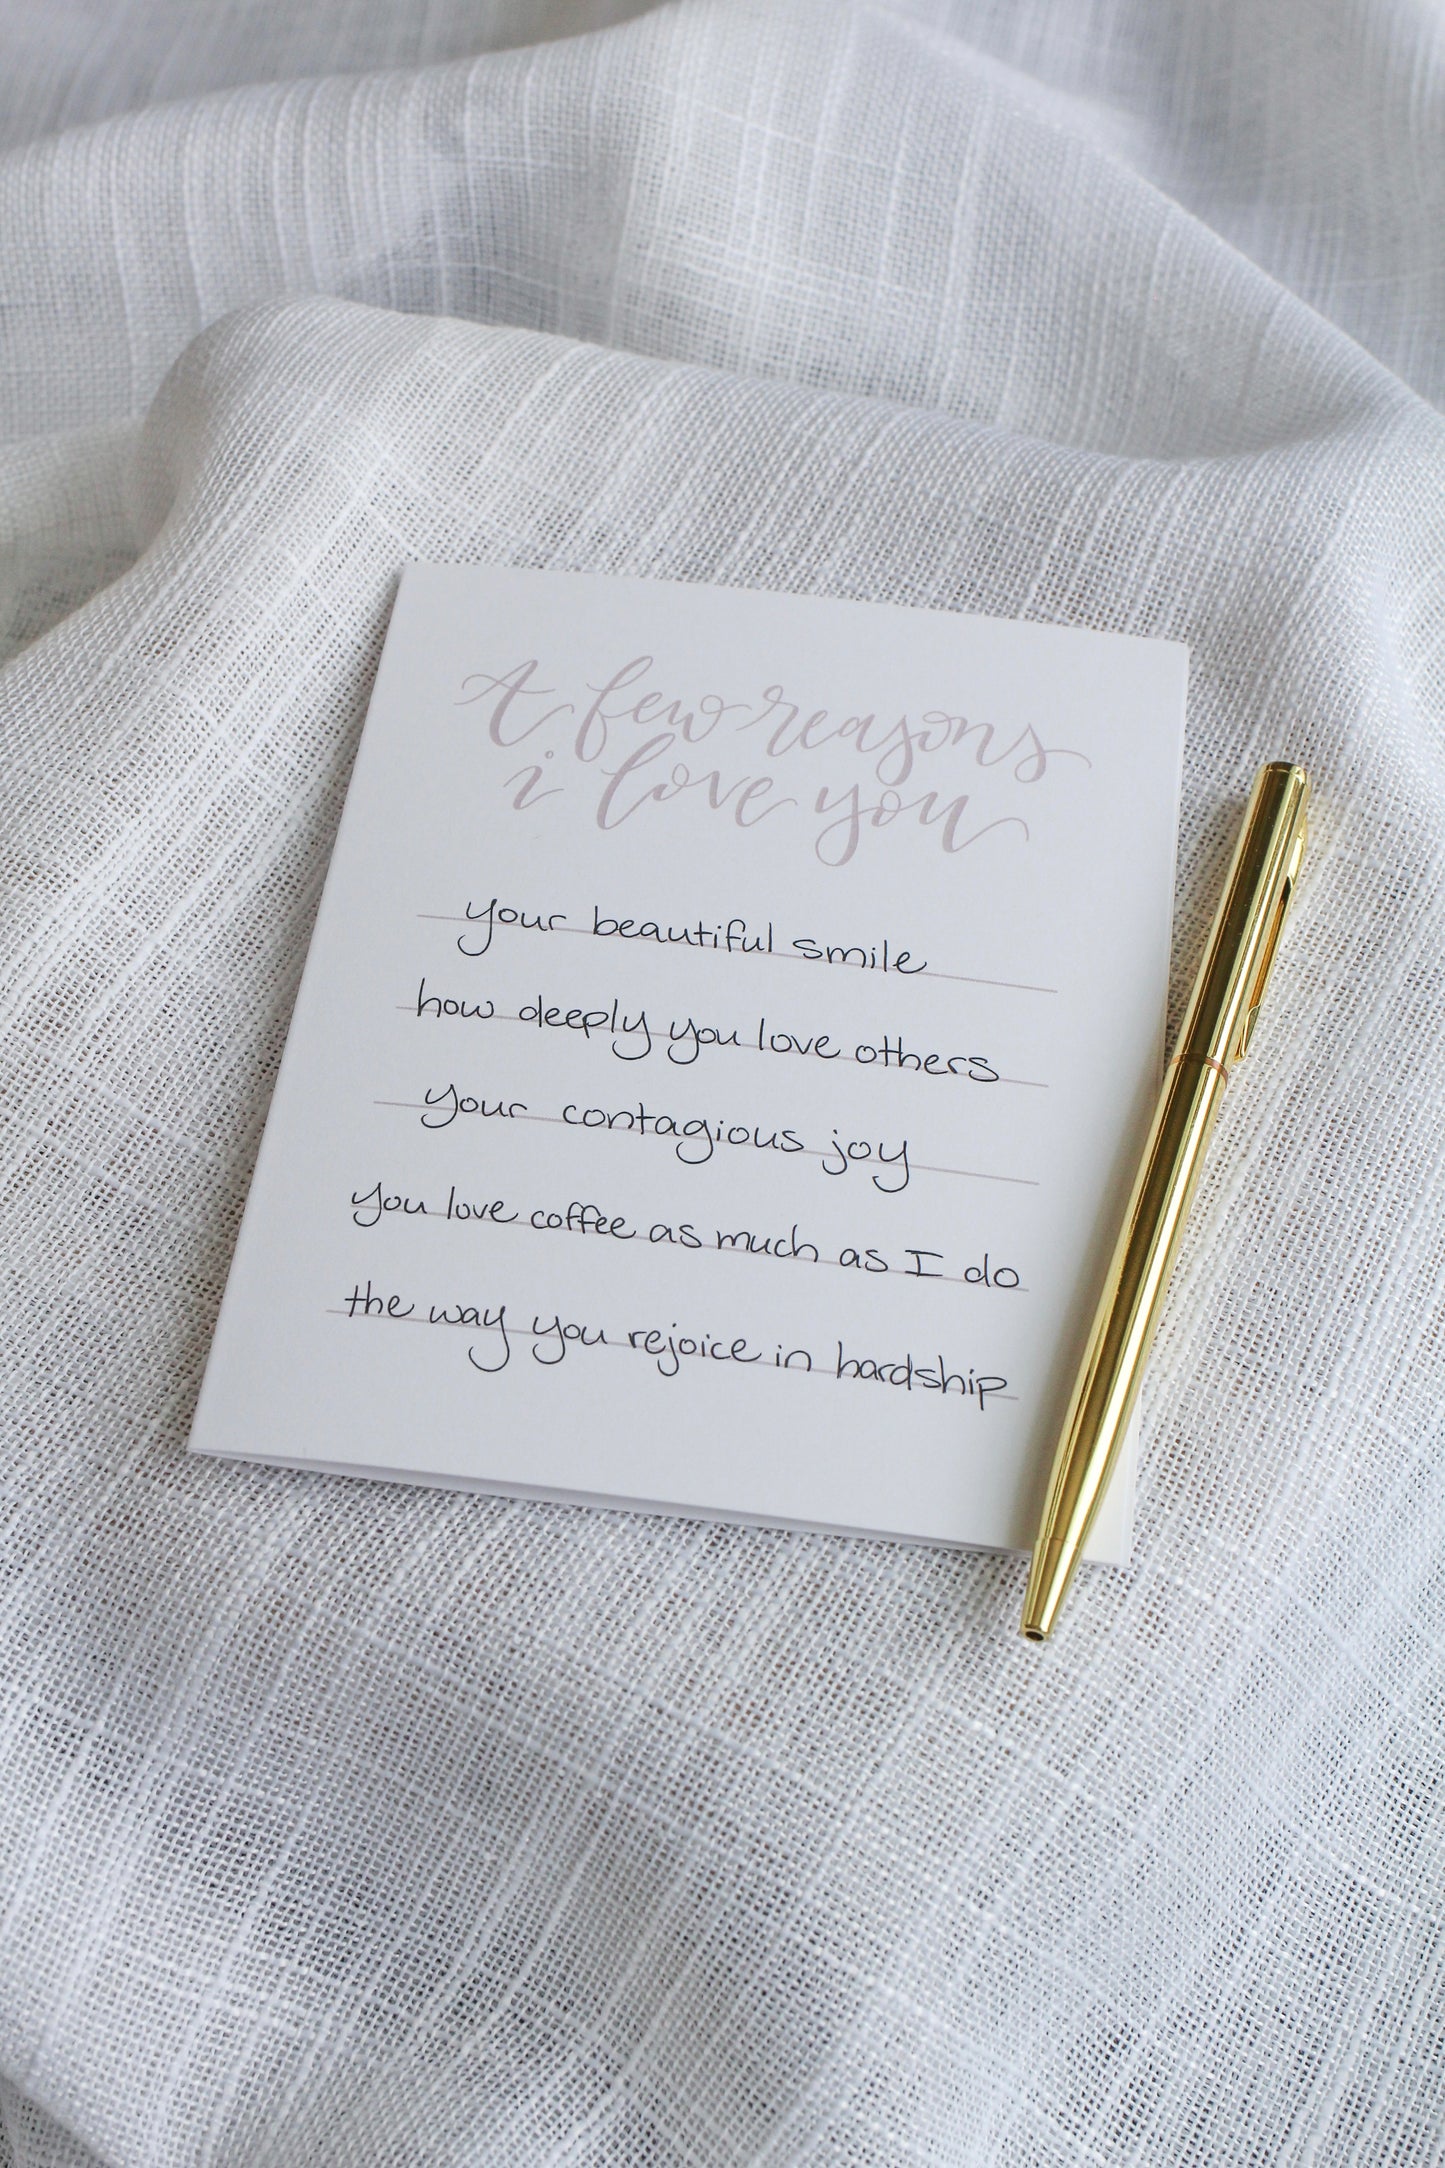 A few reasons
i love you
your beautiful smile
how deeply you love others
your contagious joy
you love coffee as much as I do
the way you rejoice in hardship